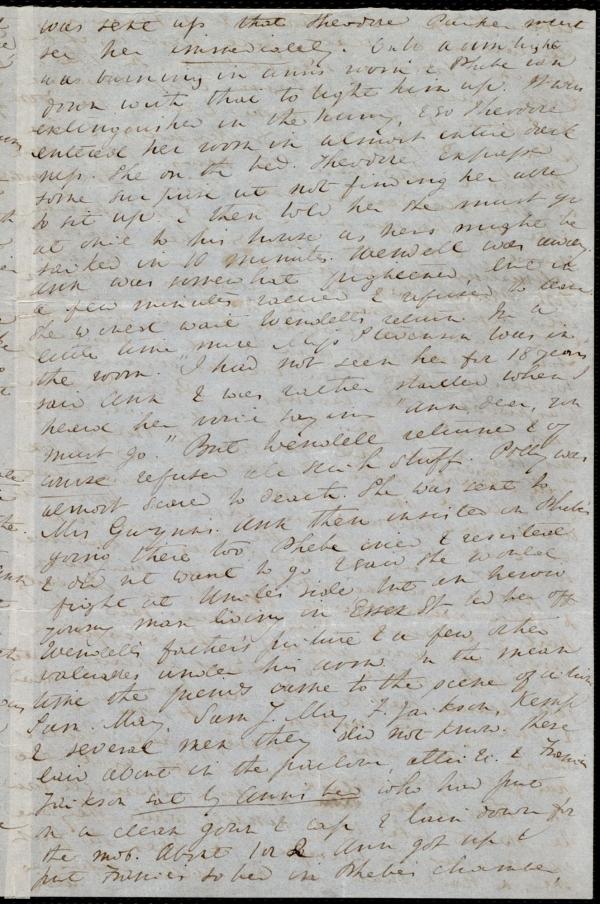 was sent up that Theodore Parker must
see her immediately. Only a dim light
was burning in Ann's room & Phebe ran
down with that to light him up. It was
extinguished in the hurry, & so Theodore
entered her room in almost entire dark
ness. She on the bed. Theodore expressed
some surprise at not finding her able
to sit up & then told her she must go
at once to his house as hers might be
sacked in 10 minutes. Wendell was away.
Ann was somewhat frightened, but in
a few minutes rallied & refused to leave
She would wait Wendell's return. In a
little time more Miss Stevenson was in
the room. "I had not seen her for 18 years
said Ann & was rather startled when I
heard her voice saying "Ann dear, you
must go." But Wendell returned & of
course refused all such stuff. Polly was
almost scared to death. She was sent to
Mrs Gwynn's. Ann then insisted on Phebe's
going there too. Phebe cried & resisted
& did not want to go & said she would
fight at Uncle's side but an heroic
young man living in Essex St. led her off
Wendell's father's picture & a few other
valuables under his arm. In the mean
time the friends came to the scene of action
Sam. May, Sam J. May, F. Jackson, Kemp
& several men they did not know. These
laid about in the parlour, attic &c. & Francis
Jackson sat by Ann's bed who had put
on a clean gown & cap & lain down for
the mob. About 1 or 2 Ann got up &
put Francis to bed in Phebe's chamber,